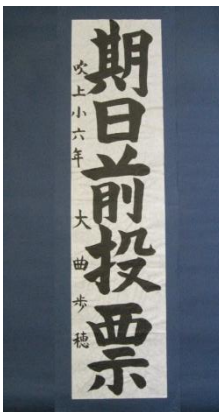 期日前投票
吹上小六年 大曲歩穂